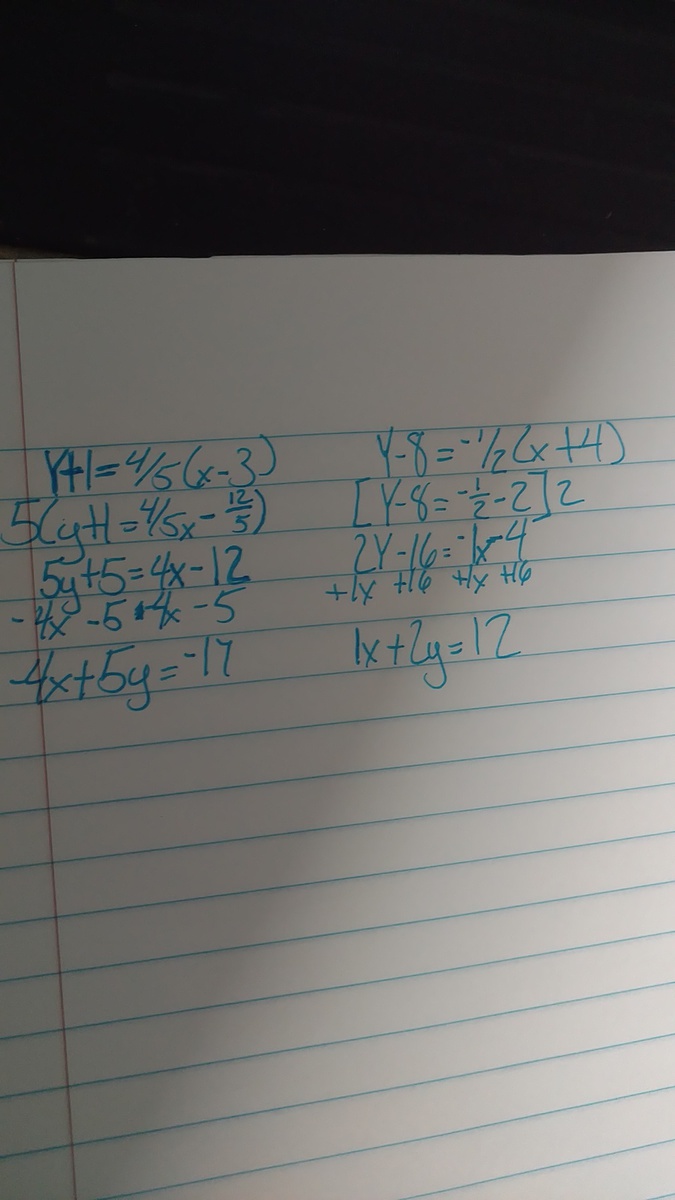 y+1=4/5(x-3)
5(y+1=4/5x-12/5)
5y+5=4x-12
-4x -5 -4x -5
-4x+5y=-17
y-8=-1/2(x+4)
[y-8=-1/2-2]2
2y-16=-1x-4
+1x +16 +1x +16
1x+2y=12